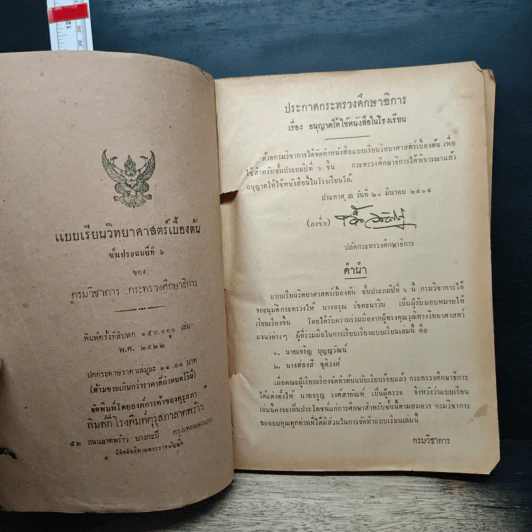 แบบเรียนวิทยาศาสตร์เบื้องต้น
ชั้นประถมปีที่ ๖
ของ
กรมวิชาการ กระทรวงศึกษาธิการ
พิมพ์ครั้งที่สิบหก ๑๕๐,๐๐๐ เล่ม
พ.ศ. ๒๕๒๒
ปกกระดาษราคาเล่มละ ๑๑.๐๐ บาท
(ห้ามขายเกินกว่าราคาที่กำหนดไว้นี้)
จัดพิมพ์โดยองค์การค้าของคุรุสภา
พิมพ์ที่โรงพิมพ์คุรุสภาลาดพร้าว
ถนนลาดพร้าว บางกะปิ กรุงเทพมหานคร
มีลิขสิทธิ์ตามพระราชบัญญัติ
ประกาศกระทรวงศึกษาธิการ
เรื่อง อนุญาตให้ใช้หนังสือในโรงเรียน
ด้วยกรมวิชาการได้จัดทำหนังสือแบบเรียนวิทยาศาสตร์เบื้องต้น เพื่อ
ใช้สำหรับชั้นประถมปีที่ ๖ ขึ้น กระทรวงศึกษาธิการได้พิจารณาแล้ว
อนุญาตให้ใช้หนังสือนี้ในโรงเรียนได้
ประกาศ ณ วันที่ ๒๐ มีนาคม ๒๕๐๕
(ลงชื่อ)
ปลัดกระทรวงศึกษาธิการ
คำนำ
แบบเรียนวิทยาศาสตร์เบื้องต้น ชั้นประถมปีที่ ๖ นี้ กรมวิชาการได้
ขออนุมัติกระทรวงให้ นางอรุณ เป็นผู้รับมอบหมายให้
เรียบเรียงขึ้น โดยได้รับความร่วมมือจากผู้ทรงคุณวุฒิทางวิทยาศาสตร์
แขนงต่างๆ ผู้ที่ร่วมมือในการเรียบเรียงแบบเรียนเล่มนี้ คือ
๑. นายเจริญ
๒. นางสองศรี
เมื่อคณะผู้เรียบเรียงจัดทำต้นฉบับเรียบร้อยแล้ว กระทรวงศึกษาธิการ
ได้แต่งตั้งให้ นายจรูญ เป็นผู้ตรวจ จึงหวังว่าแบบเรียน
เล่มนี้คงจะเป็นประโยชน์แก่การศึกษาสำหรับชั้นนี้ตามสมควร กรมวิชาการ
ขอขอบคุณทุกท่านที่ได้มีส่วนในการจัดทำแบบเรียนเล่มนี้
กรมวิชาการ